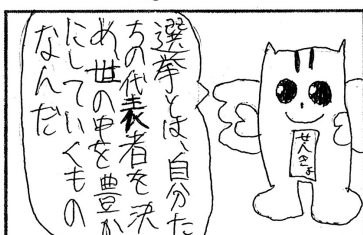 選挙とは、自分た
ちの代表者を決
め、世の中を豊か
にしていくもの
なんだ
せんきょ